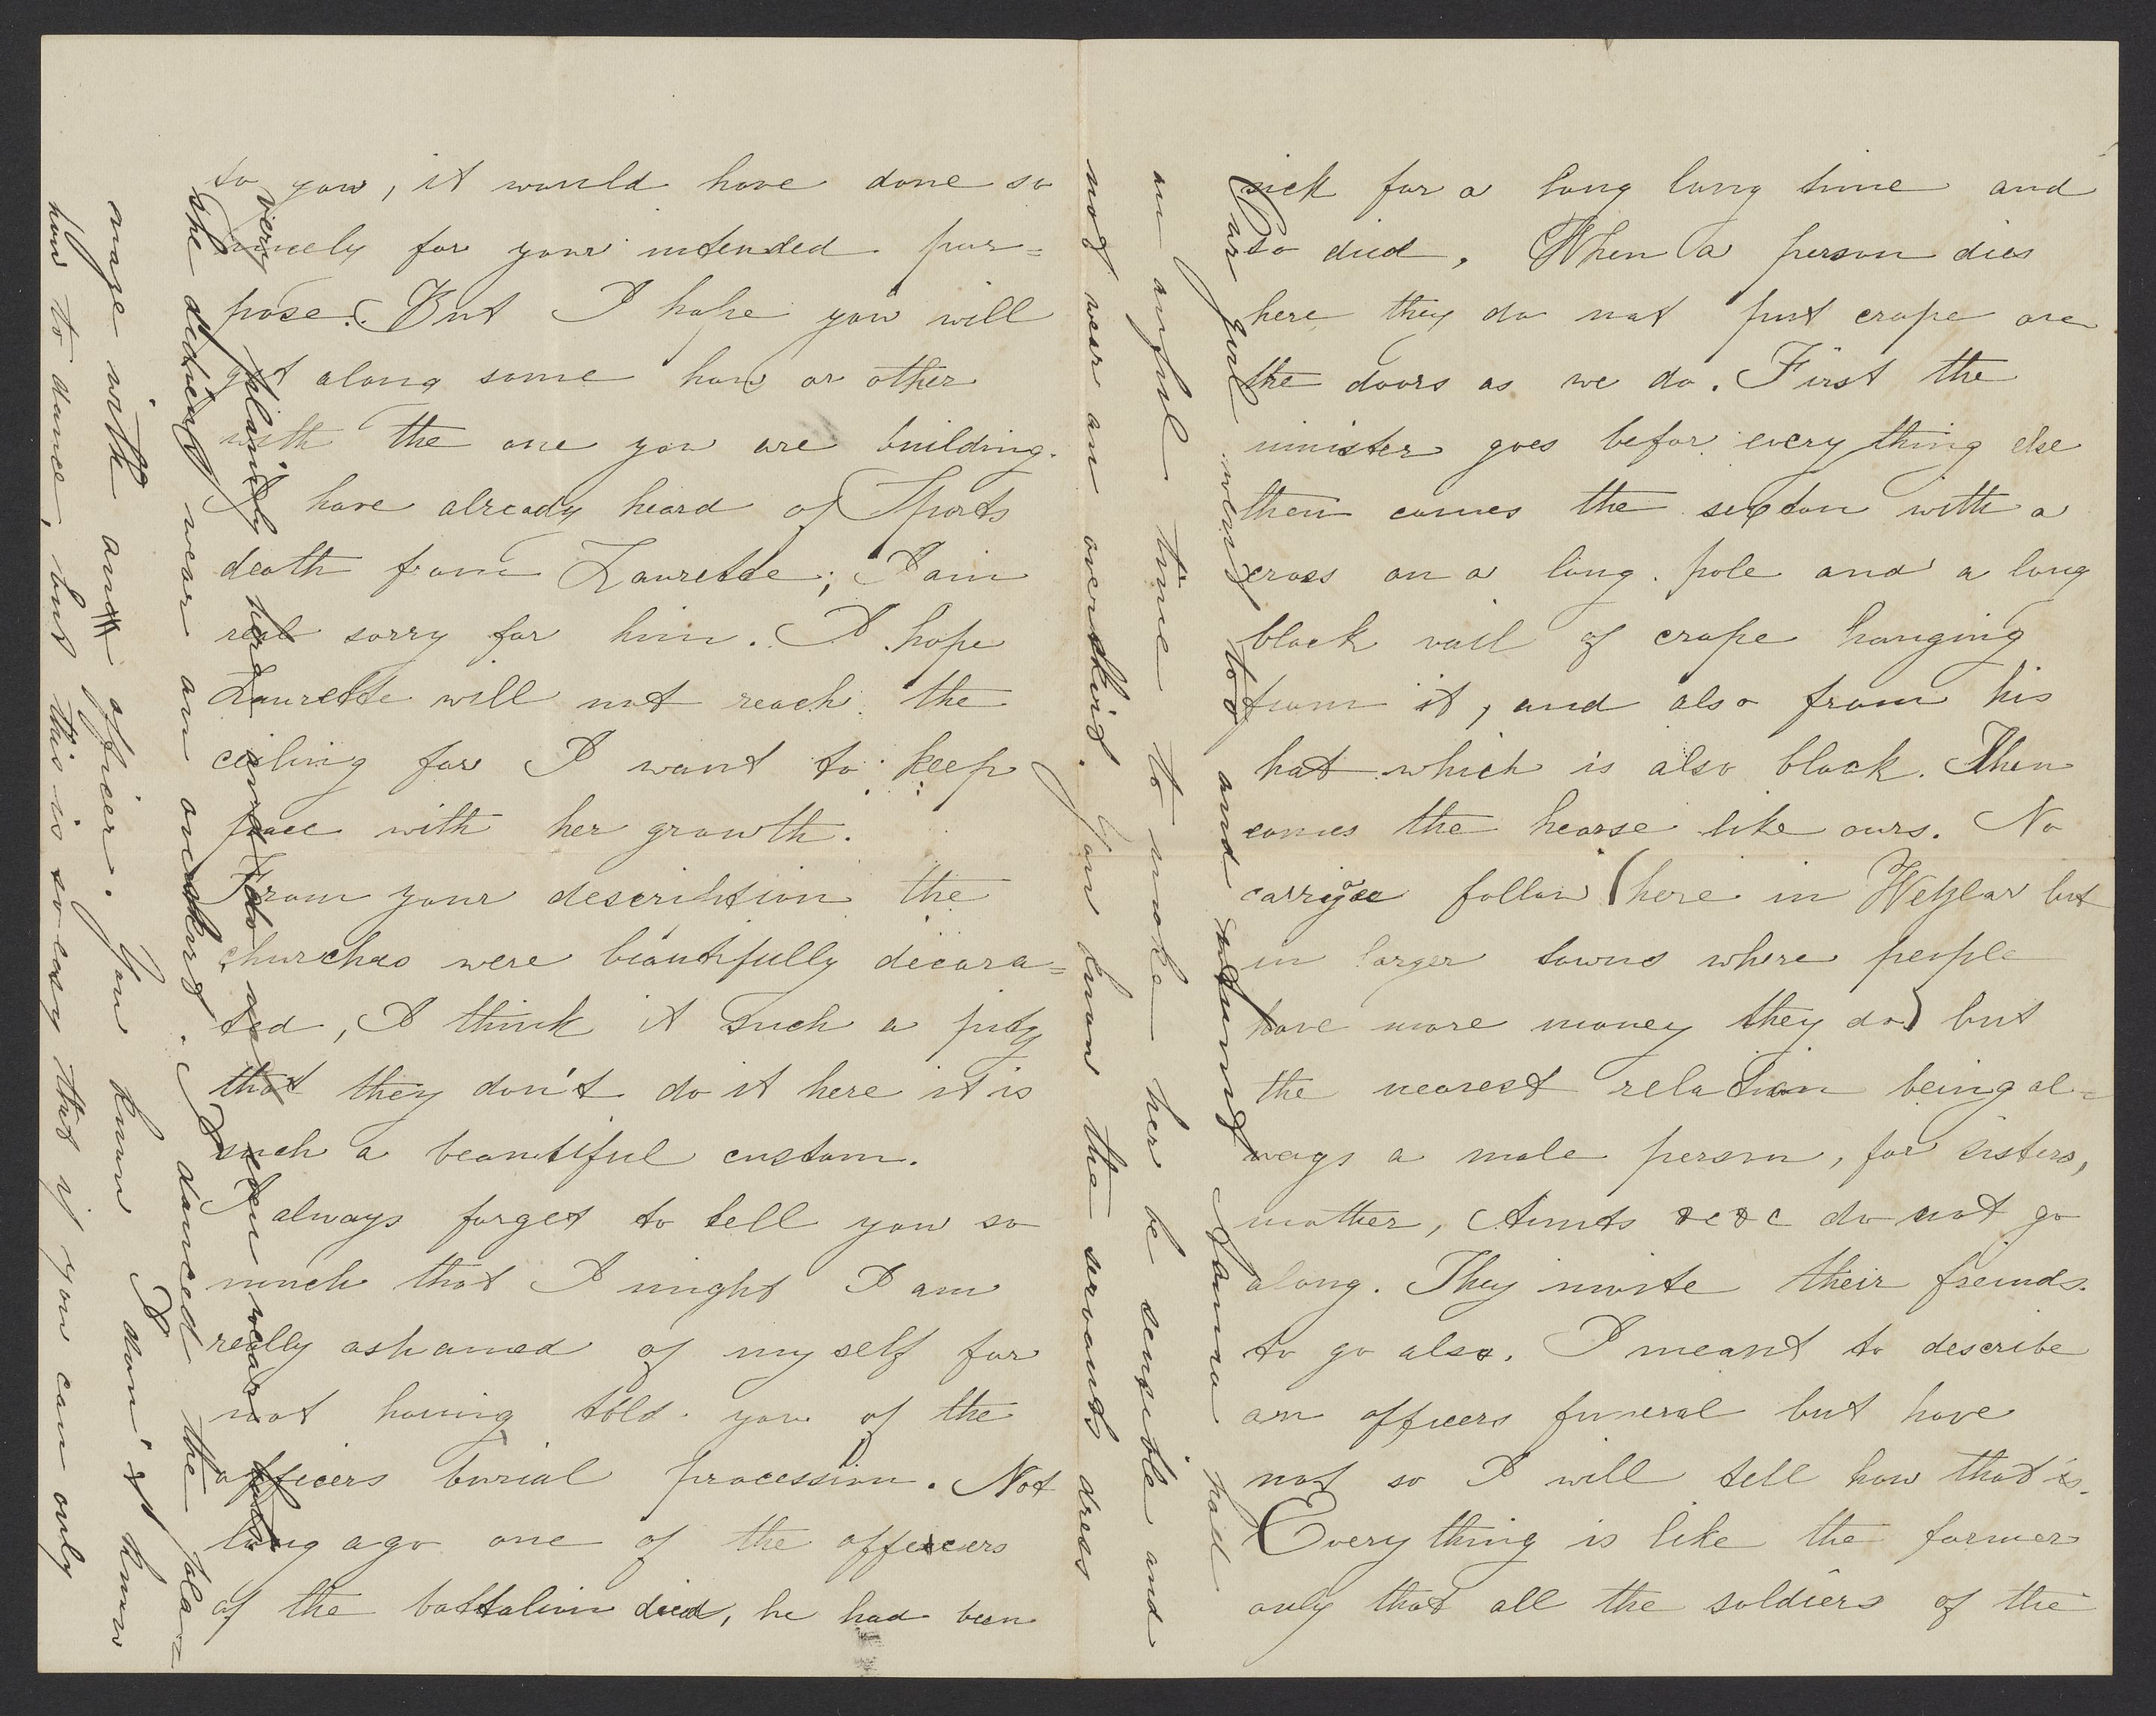 to you, it would have done so
nicely for your intended pur=
pose. But I hope you will
get along some how or other
with the one you are building.
I have already heard of Sports
death from Laurette; I am
real sorry for him. I hope
Laurette will not reach the
ceiling for I want to keep
pace with her growth.
From your describtion the
churches were beautifully decora=
ted, I think it such a pity
that they don't do it here it is
such a beautiful custom.
I always forget to tell you so
much that I might I am
really ashamed of my self for
not having told you of the
officers burial procession. Not
long ago one of the officers
of the battalion died, he had been
sick for a long long time and
so died. When a person dies
here they do not put crape on
the doors as we do. First the
minister goes befor every thing else
then comes the sexton with a
cross on a long pole and a long
black vail of crape hanging
from it, and also from his
hat which is also black. Then
comes the hearse like ours. No
carrigae follow (here in Wetzlar but
in larger towns where people
have more money they do) but
the nearest relation being al=
ways a male person, for sisters,
mother, Aunts &c &c do not go
along. They invite their freinds
to go also. I meant to describe
an officers funeral but have
not so I will tell how that is.
Every thing is like the former
only that all the soldiers of the
Our girl went too and Mama had
an awful time to make her be sensible and
not wear an overskirt. You know the servants dress
very plainly here and do not even wear hats
she didn't wear an overskirt. I danced the pla=
nage with an officer. You know I don't know
how to dance, but this is so easy that if you can only